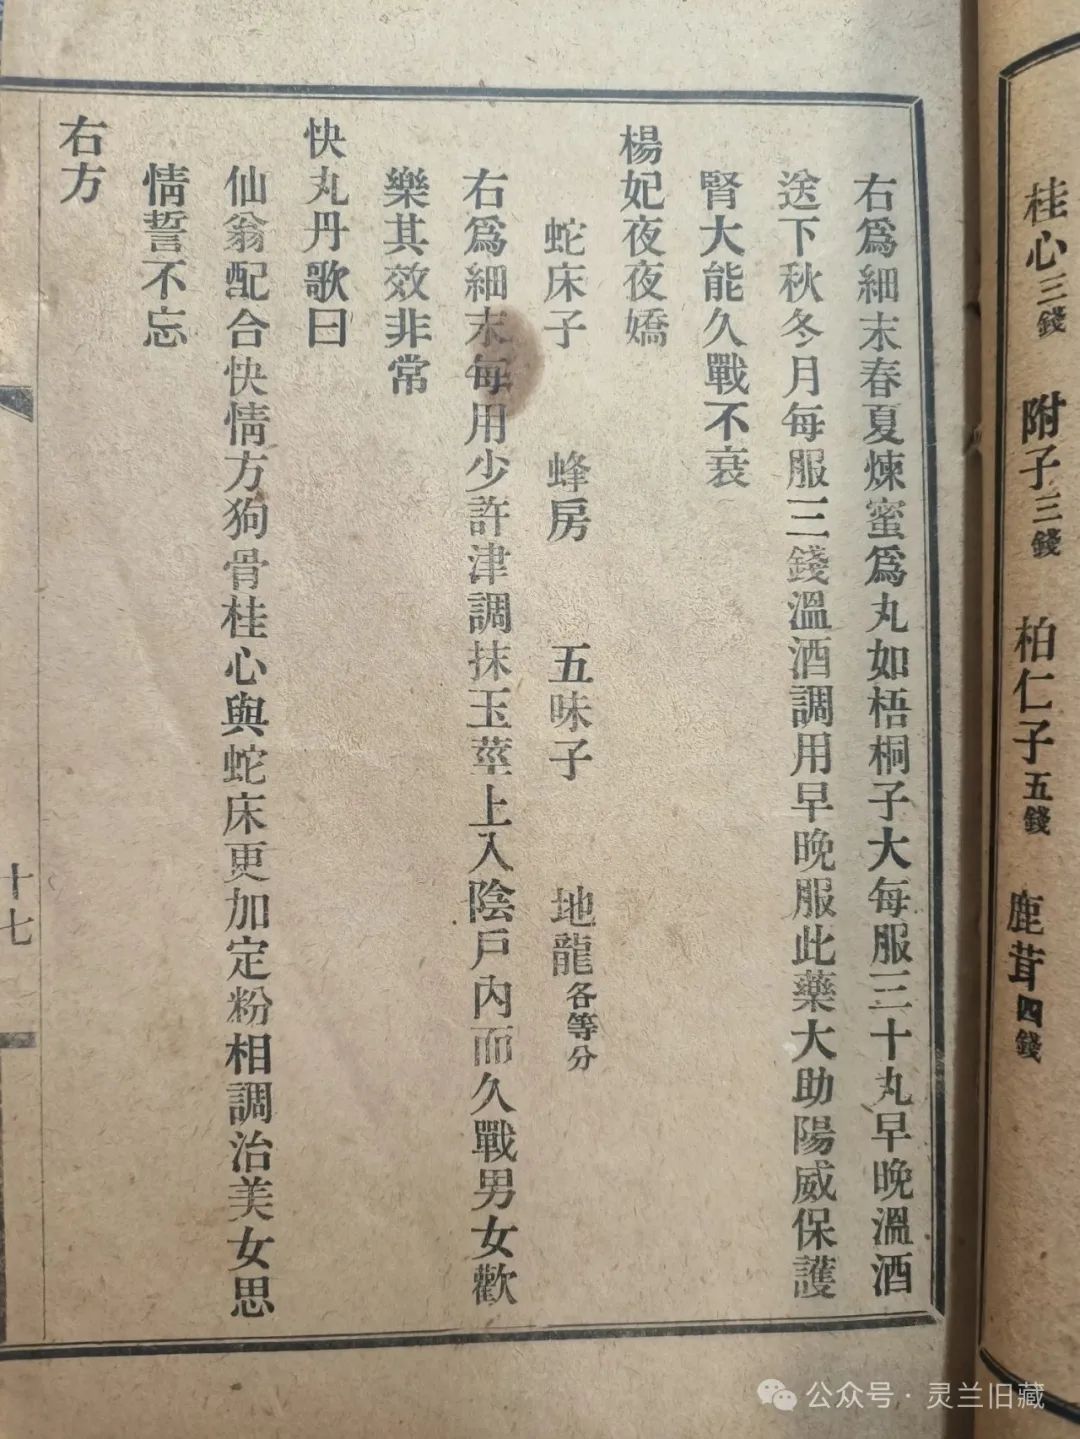 桂心三錢　附子三錢　柏仁子五錢　鹿茸四錢
右爲細末春夏煉蜜爲丸如梧桐子大每服三十丸早晚溫酒
送下秋冬月每服三錢溫酒調用早晚服此藥大助陽威保護
腎大能久戰不衰
楊妃夜夜嬌
蛇床子　蜂房　五味子　地龍各等分
右爲細末每用少許津調抹玉莖上入陰戶內而久戰男女歡
樂其效非常
快丸丹歌曰
仙翁配合快情方狗骨桂心與蛇床更加定粉相調治美女思
情誓不忘
右方
十七
公众号·灵兰旧藏